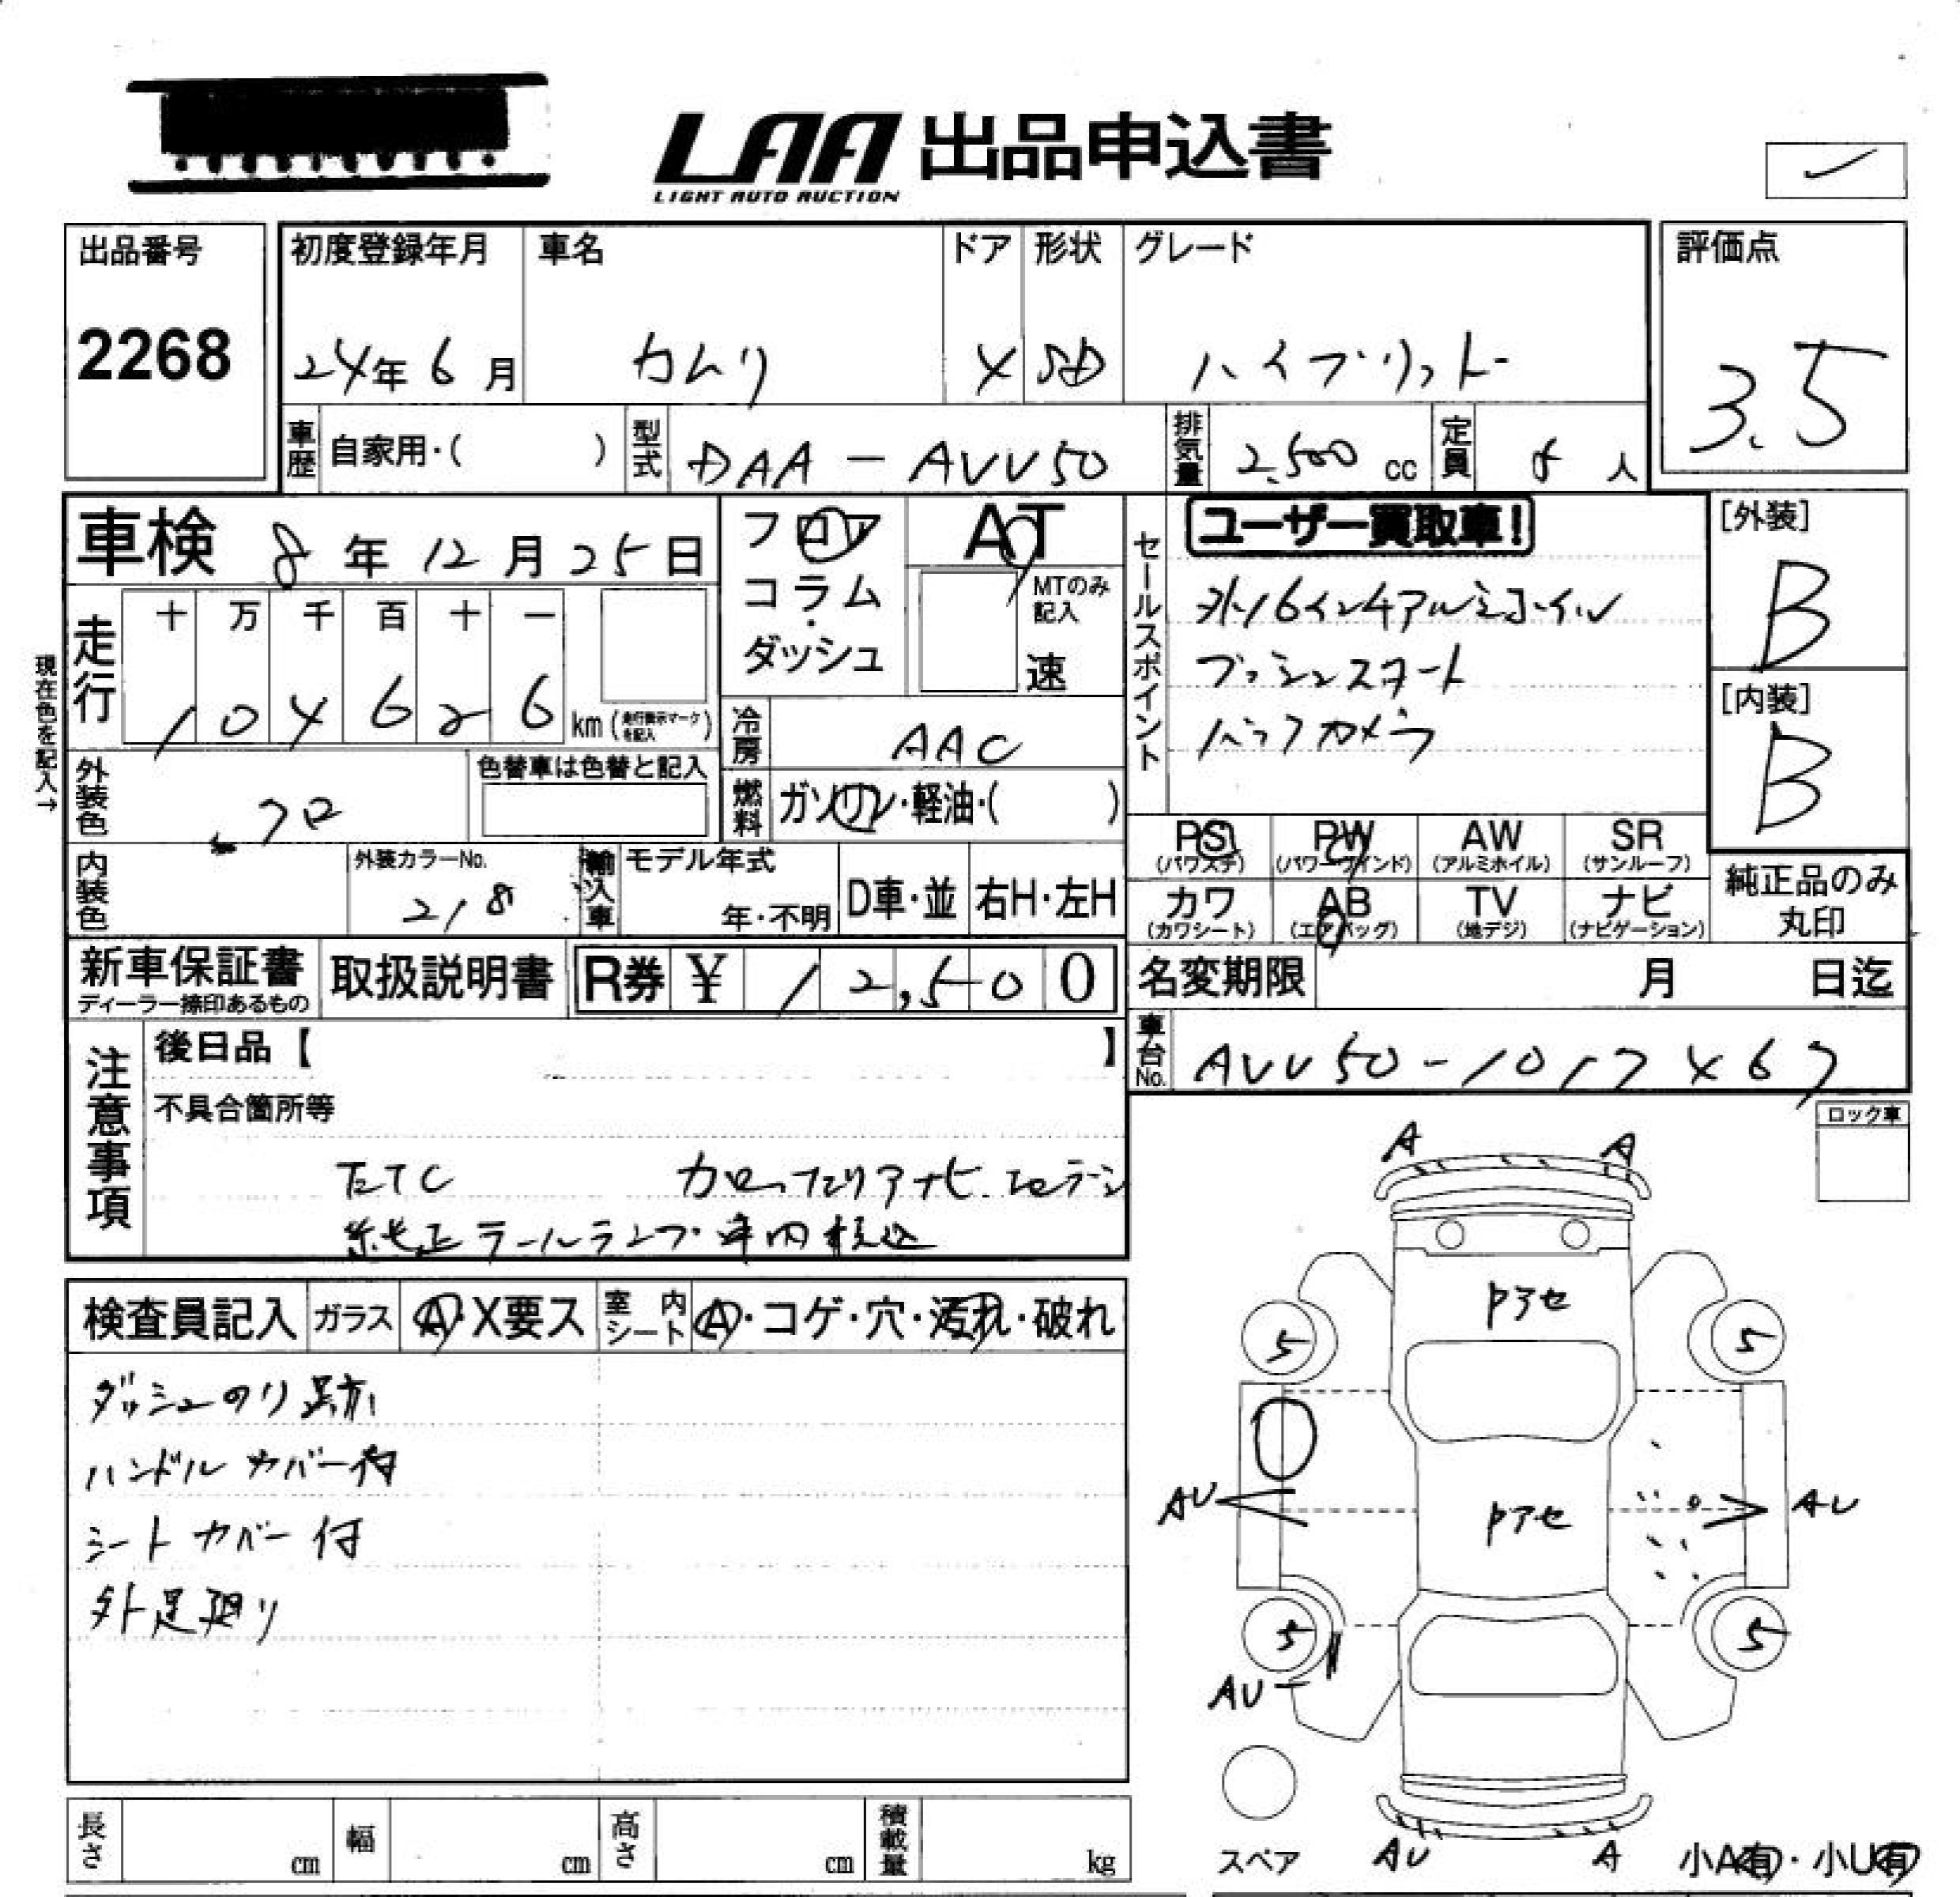 LAA 出品申込書
LIGHT AUTO AUCTION
出品番号
2268
初度登録年月
24年6月
車名
カムリ
ドア
4
形状
SD
グレード
ハイブリット
評価点
3.5
車歴 自家用・( )
型式 DAA-AVV50
排気量 2,500 cc
定員 5 人
車検 8年12月25日
フロア
コラム
・
ダッシュ
AT
MTのみ
記入
速
セールスポイント
ユーザー買取車!
外16インチアルミホイル
プッシュスタート
バックカメラ
[外装]
B
[内装]
B
現在色を記入→
走行
十 万 千 百 十 一
1 0 4 6 2 6 km (走行表示マークを記入)
冷房 AAC
燃料 ガソリン・軽油・( )
外装色 クロ
色替車は色替と記入
内装色
外装カラーNo.
218
輸入車
モデル年式
年・不明
D車・並
右H・左H
PS
(パワステ)
PW
(パワーウインド)
AW
(アルミホイル)
SR
(サンルーフ)
カワ
(カワシート)
AB
(エアバッグ)
TV
(地デジ)
ナビ
(ナビゲーション)
純正品のみ
丸印
新車保証書
ディーラー捺印あるもの
取扱説明書
R券 ¥ 12,500
名変期限 月 日迄
車台No. AVV50-1017467
注意事項
後日品【 】
不具合箇所等
ETC カロッツェリアナビ
純正テールランプ車内積込
ロック車
検査員記入 ガラス A・X要ス 室内シート A・コゲ・穴・汚れ・破れ
ダッシュのり跡
ハンドルカバー付
シートカバー付
外足廻り
A A
5 5
AU AU
5 5
AU
スペア
AU A
小A有・小U有
長さ cm
幅 cm
高さ cm
積載量 kg